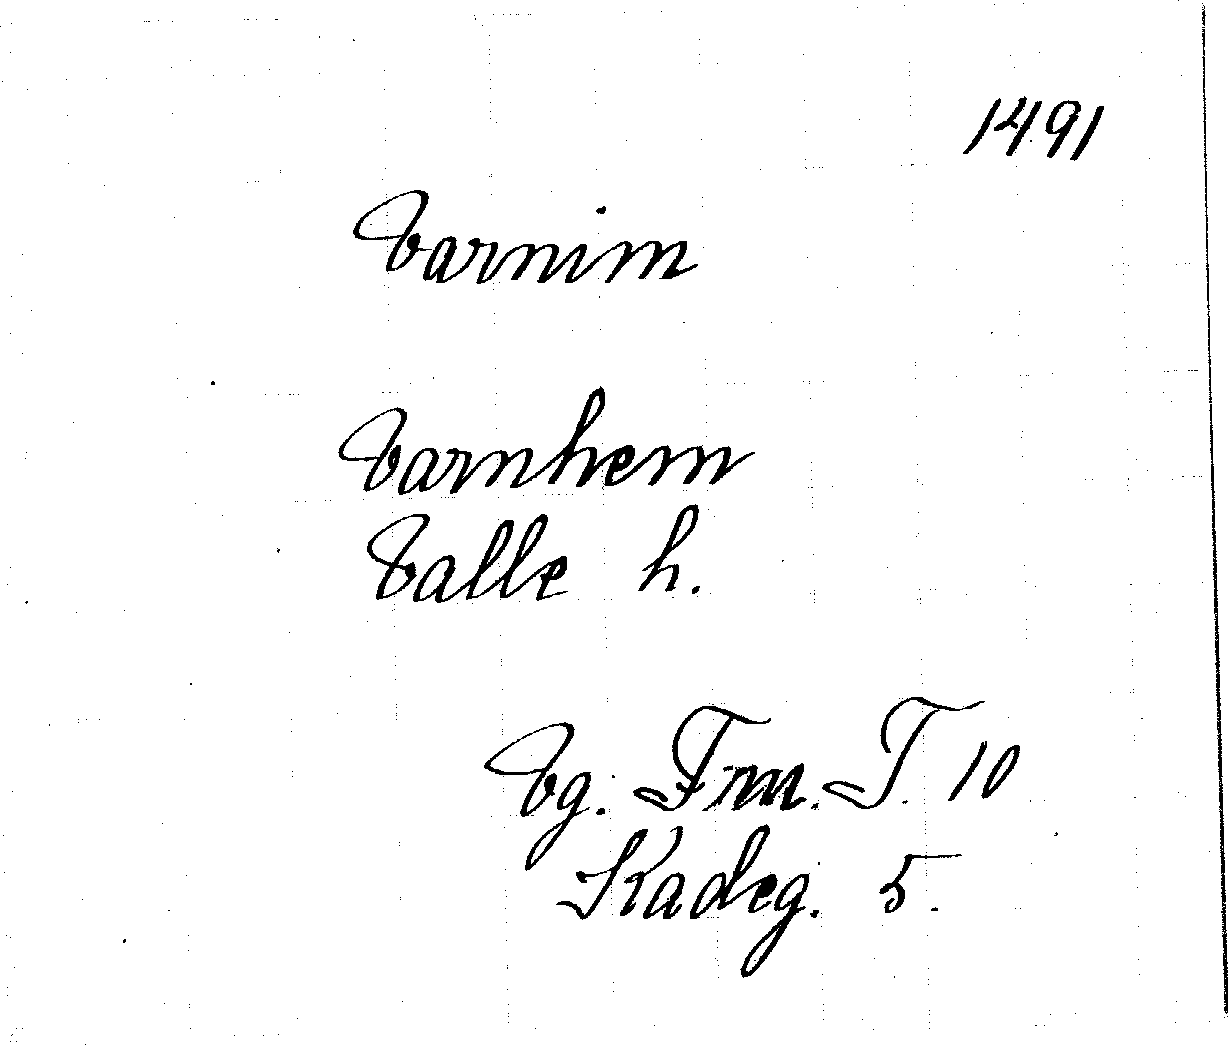 1491
Varnim
Varnhem
Valle h.
Vg. Fm. I 10
Kadeg. 5.